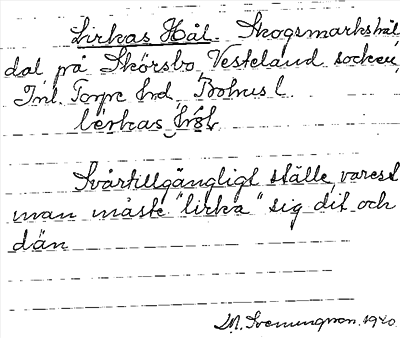 Lirkas Hål. Skogsmarkshål
dal på Skörsbo, Vesteland socken,
Inl. Torpe hrd, Bohus l.
Svårtillgängligt ställe, varest
man måste "lirka" sig dit och
dän
M. Svenungsson. 1920.